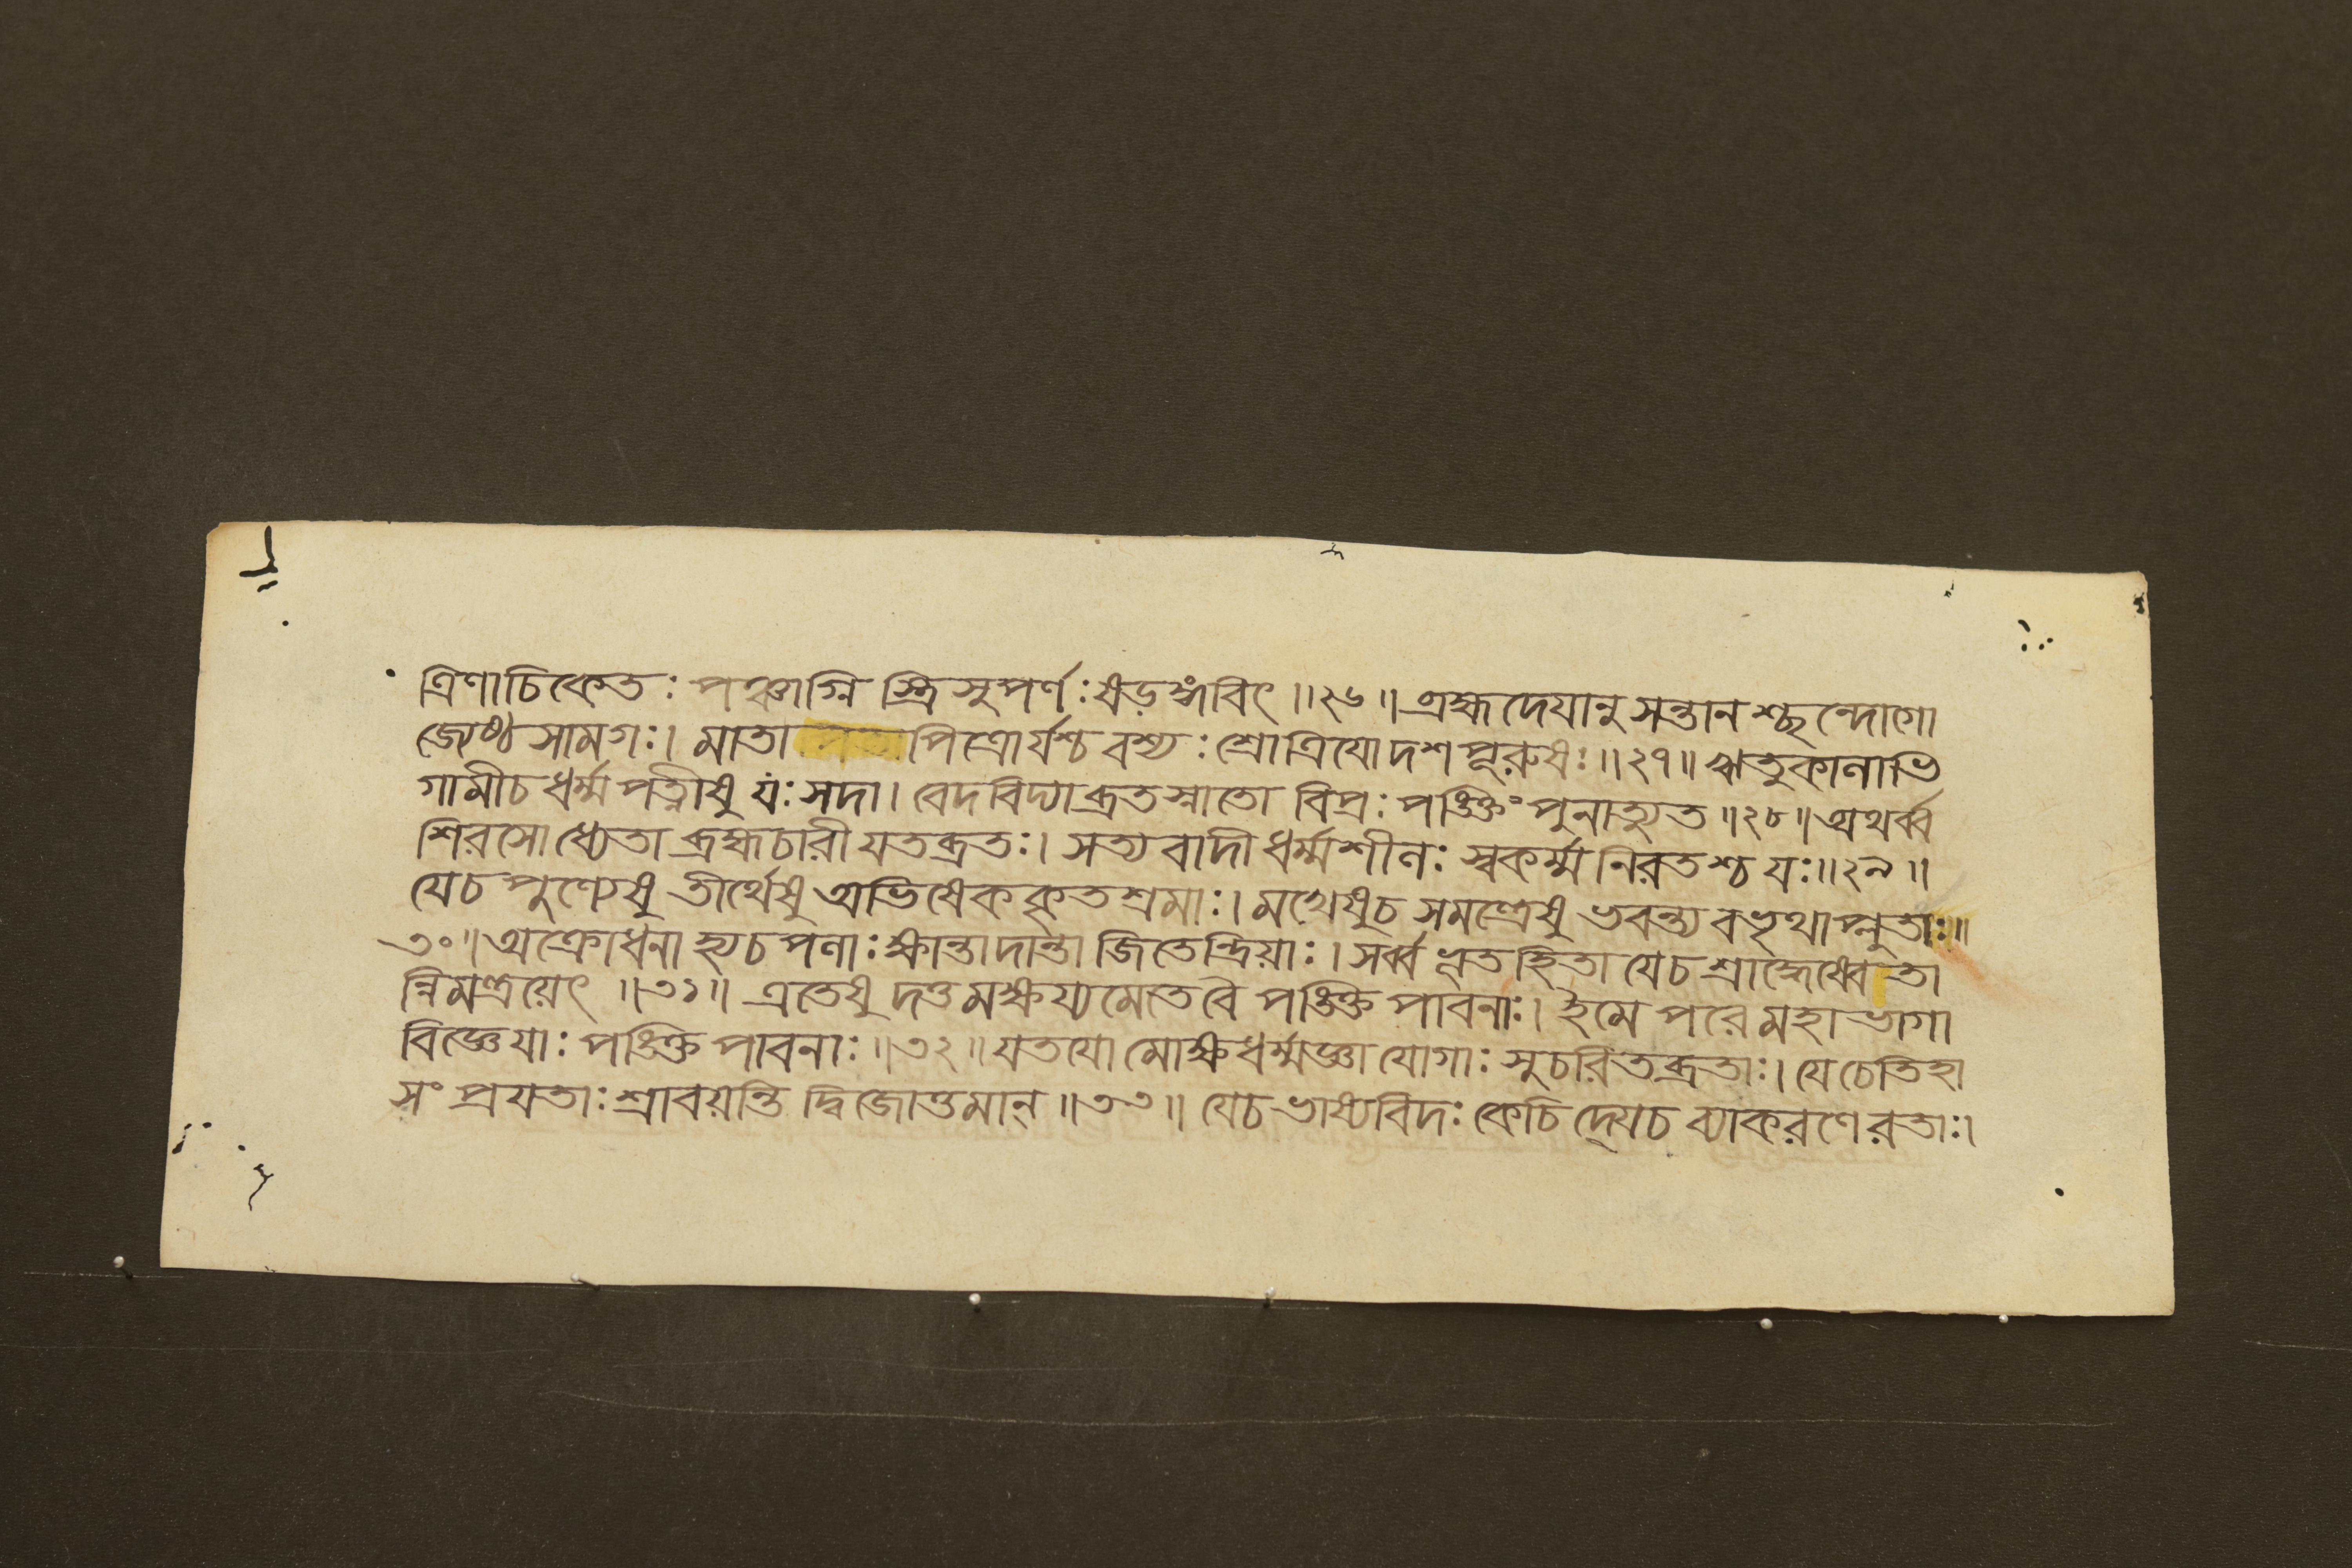 ত্রিণাচিকেতঃ পঞ্চাগ্নি স্ত্রিসুপর্ণঃ ষড়ঙ্গবিৎ ॥২৬॥ ব্রহ্মদেয়ানুসন্তানশ্ছন্দোগো
জ্যেষ্ঠসামগঃ। মাতাপিত্রোর্যশ্চবশ্যঃ শ্রোত্রিযোদশপূরুষঃ॥২৭॥ ঋতুকালাভি
গামীচধর্ম্মপত্নীষু যঃ সদা। বেদবিদ্যাব্রতস্নাতো বিপ্রঃ পঙ্ক্তিং পুনাত্যুত॥২৮॥ অথর্ব্ব
শিরসোধ্যেতা ব্রহ্মচারীযতব্রতঃ। সত্যবাদী ধর্ম্মশীলঃ স্বকর্ম্মনিরতশ্চ যঃ॥২৯॥
যেচ পুণ্যেষু তীর্থেষু অভিষেককৃতশ্রমাঃ। মখেষুচ সমন্ত্রেষু ভবন্ত্যবভৃথাপ্লুতাঃ॥
৩০॥ অক্রোধনা হ্যচপলাঃ ক্ষান্তাদান্তা জিতেন্দ্রিয়াঃ। সর্ব্বভূতহিতা যেচ শ্রাদ্ধেষ্বেতা
ন্নিমন্ত্রয়েৎ ॥৩১॥ এতেষু দত্তমক্ষয্যমেতেবৈ পঙ্ক্তিপাবনাঃ। ইমে পরেমহাভাগা
বিজ্ঞেযাঃ পঙ্ক্তিপাবনাঃ॥৩২॥ যতযো মোক্ষধর্ম্মজ্ঞা যোগাঃ সুচরিতব্রতাঃ। যেচেতিহা
সং প্রযতাঃ শ্রাবয়ন্তি দ্বিজোত্তমান্ ॥৩৩॥ যেচভাষ্যবিদঃ কেচিদ্যেচ ব্যাকরণেরতাঃ।